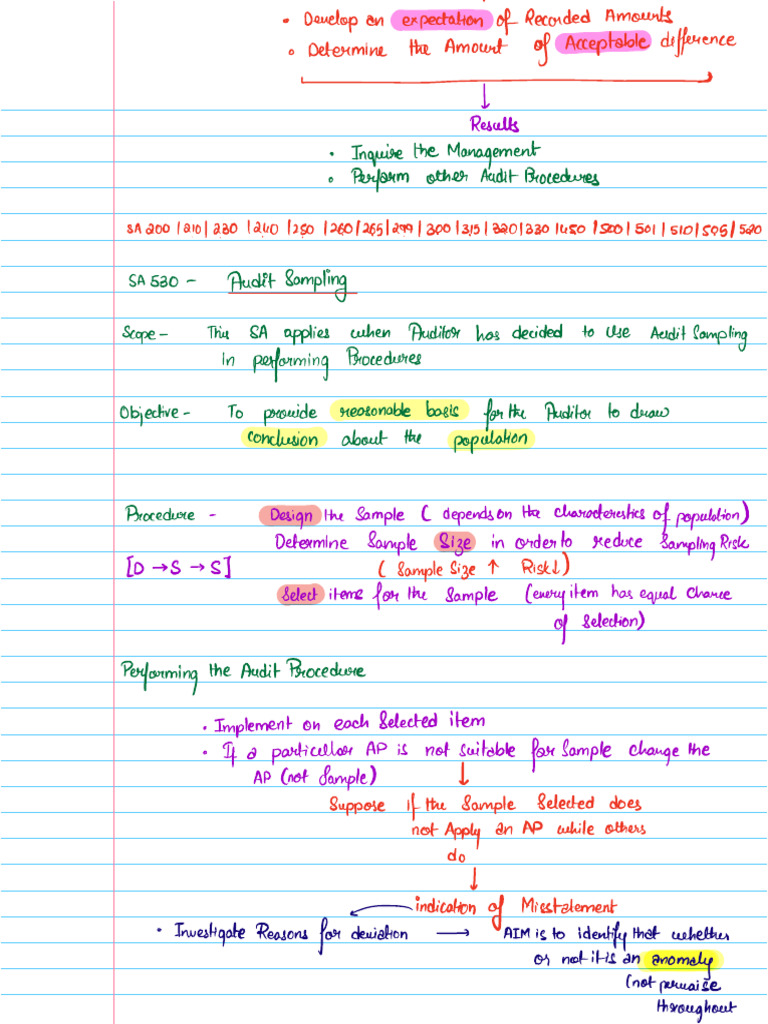 • Develop an expectation of Recorded Amounts
• Determine the Amount of Acceptable difference
Results
• Inquire the Management
• Perform other Audit Procedures
SA 200 | 210 | 230 | 240 | 250 | 260 | 265 | 299 | 300 | 315 | 320 | 330 | 450 | 500 | 501 | 510 | 505 | 520
SA 530 - Audit Sampling
Scope - This SA applies when Auditor has decided to use Audit Sampling
in performing Procedures
Objective - To provide reasonable basis for the Auditor to draw
conclusion about the population
Procedure - Design the Sample ( depends on the characteristics of population)
Determine Sample Size in order to reduce Sampling Risk
[D → S → S] ( Sample Size ↑ Risk ↓ )
Select items for the Sample (every item has equal chance
of selection)
Performing the Audit Procedure
• Implement on each Selected item
• If a particular AP is not suitable for Sample change the
AP (not Sample)
Suppose if the Sample Selected does
not Apply an AP while others
do
indication of Misstatement
• Investigate Reasons for deviation → AIM is to identify that whether
or not it is an anomaly
(not pervaise
throughout